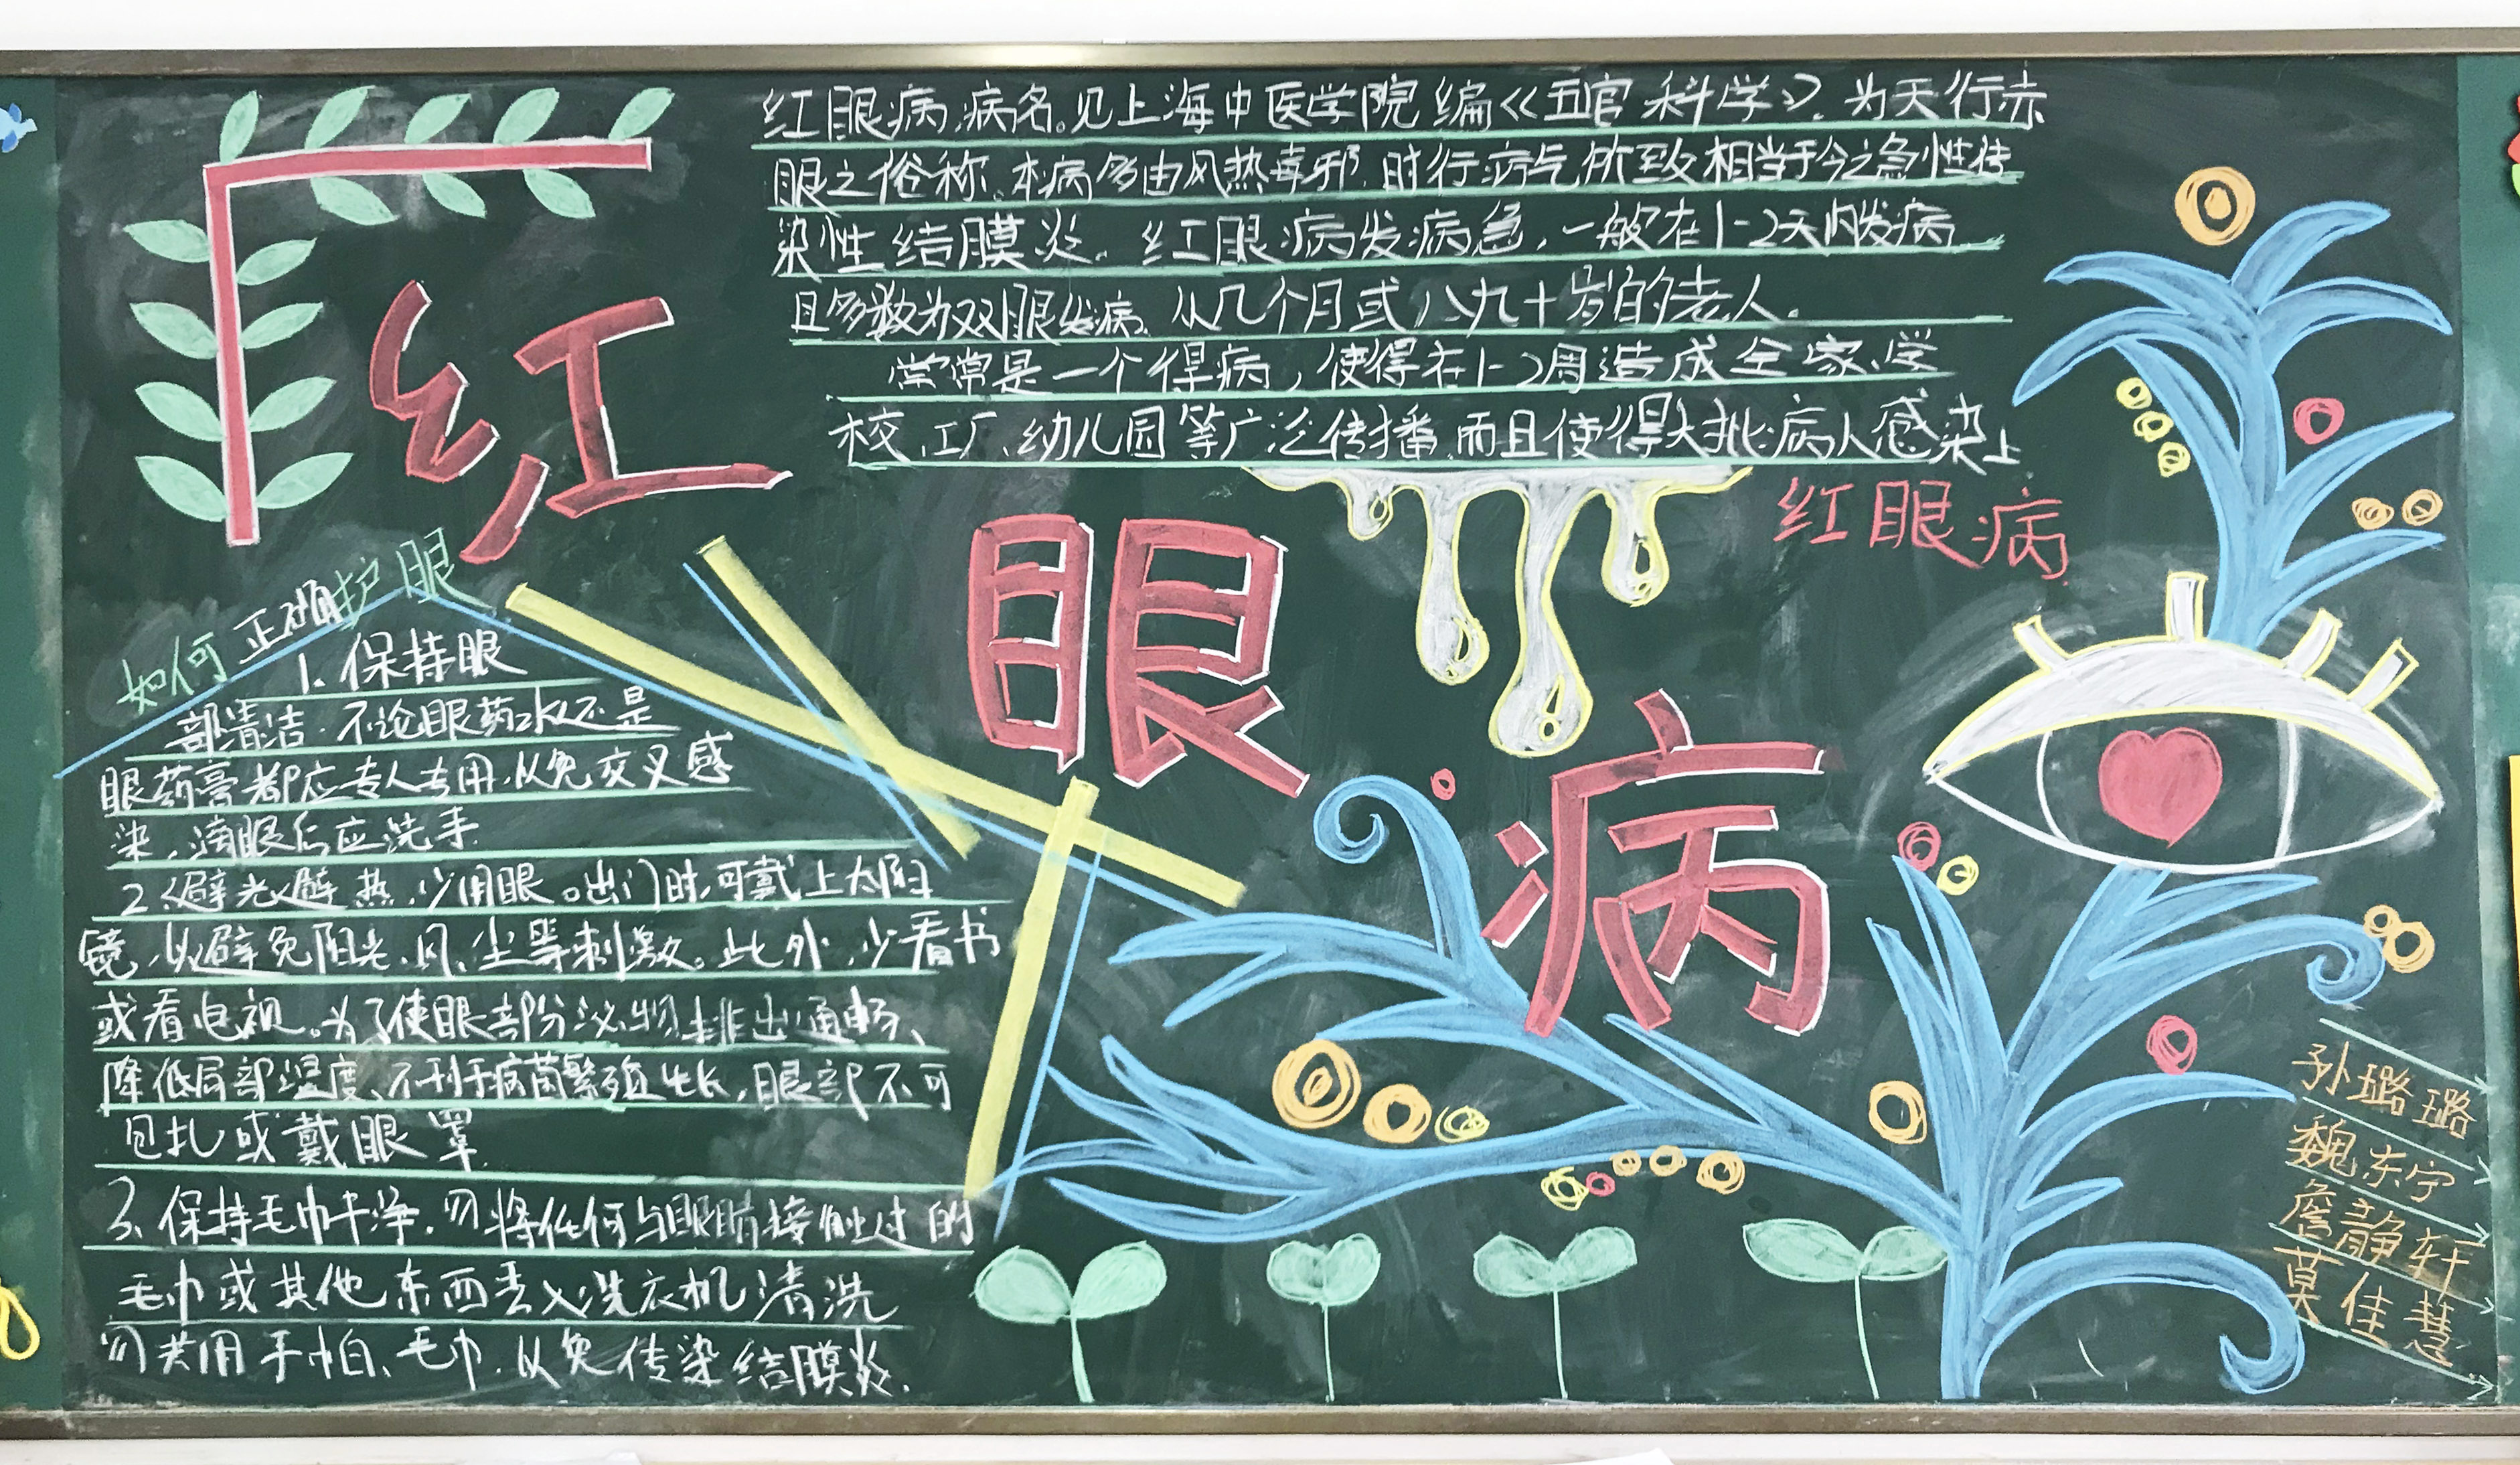 红眼病,病名。见上海中医学院编《五官科学》。为天行赤
眼之俗称。本病多由风热毒邪.时行疠气所致相当于今之急性传
染性结膜炎。红眼病发病急,一般在1-2天内发病
且多数为双眼发病、从几个月或八九十岁的老人。
常常是一个得病,使得在1-2周造成全家、学
校、工厂、幼儿园等广泛传播,而且使得大批病人感染上
红眼病
红
眼
病
如何正确护眼
1、保持眼
部清洁.不论眼药水还是
眼药膏都应专人专用,以免交叉感
染,滴眼后应洗手
2、避光避热,少用眼。出门时,可戴上太阳
镜,以避免阳光、风、尘等刺激。此外,少看书
或看电视。为了使眼部分泌物排出通畅、
降低局部温度、不利于病菌繁殖生长,眼部不可
包扎或戴眼罩
3、保持毛巾干净.勿将任何与眼睛接触过的
毛巾或其他东西丢入洗衣机清洗
勿共用手帕、毛巾,以免传染结膜炎.
孙璐璐
魏东宁
詹静轩
莫佳慧